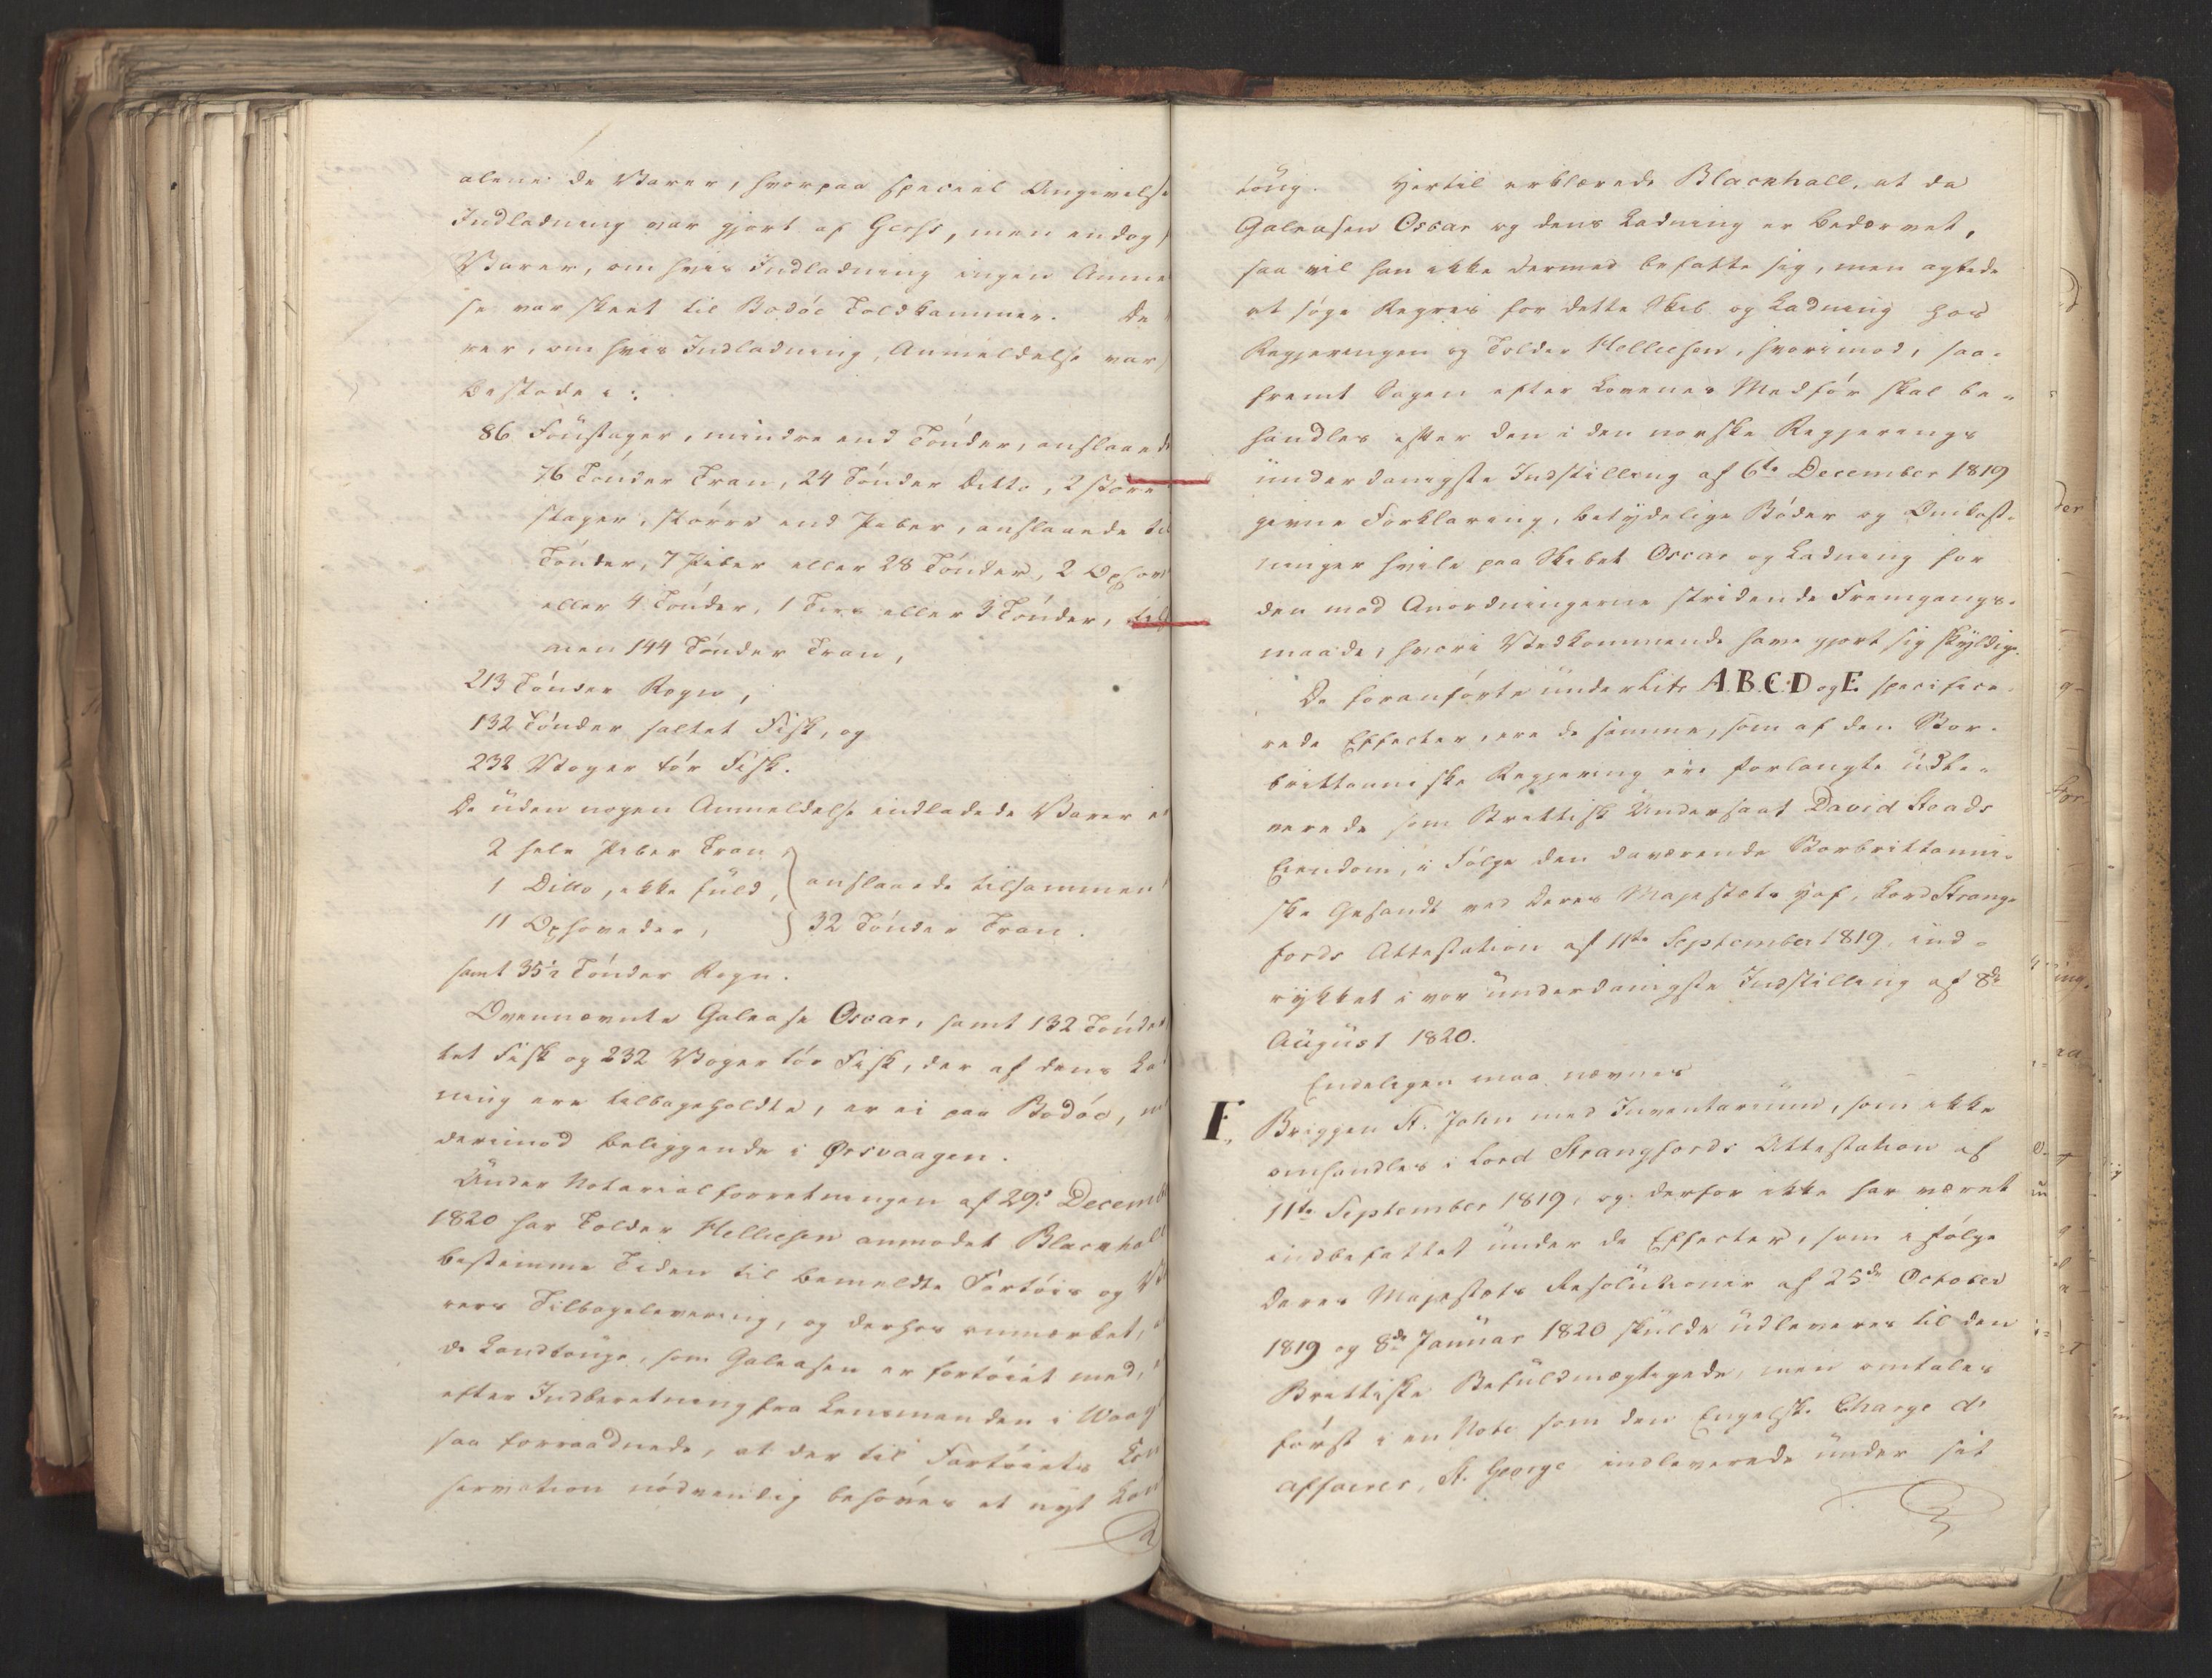 alene de Varer, hvorpaa speciel Angivelse
Indladning var gjort af Gerss, men endog
Varer, om hvis Indladning ingen Anme
se var skeet til Bodöe Toldkammer. De
rer, om hvis Indladning, Anmeldelse var
bestode i:
86 Foustager, mindre end Tönder, anslaaede
76 Tönder Tran, 24 Tönder Ditto, 2 store
stager, större end Piber, anslaaede til
Tönder, 7 Piber eller 28 Tönder, 2 Oxhov
eller 4 Tönder, 1 Ters eller 3 Tönder, tils
men 144 Tönder Tran,
213 Tönder Rogn,
132 Tönder saltet Fisk, og
232 Voger tör Fisk.
De uden nogen Anmeldelse indladede Varer e
2 hele Piber Tran,
1 Ditto, ikke fuld, anslaaede tilsammen
11 Oxhoveder, 32 Tönder Tran.
samt 35½ Tönder Rogn.
Ovennævnte Galease Oscar, samt 132 Tönder
tet Fisk og 232 Voger tör Fisk, der af dens La
ning ere tilbageholdte, er ei paa Bodöe, m
derimod beliggende i Ørsvaagen.
Under Notarialforretningen af 29de Decemb
1820 har Tolder Helliesen anmodet Blackhall
bestemme Tiden til bemeldte Fartöis og Va
rers Tilbagelevering, og derhos anmærket,
de Landtouge, som Galeasen er fortöiet med,
efter Indberetning fra Lensmanden i Waag
saa forraadnede, at der til Fartöiets Con
servation nödvendig behöves et nyt Lan
toug. Hertil erklærede Blackhall, at da
Galeasen Oscar og dens Ladning er bedærvet,
saa vil han ikke dermed befatte sig, men agtede
at söge Regres for dette Skib og Ladning hos
Regjeringen og Tolder Helliesen, hvorimod, saa-
fremt Sagen efter Lovenes Medför skal be-
handles efter den i den norske Regjerings
underdanigste Indstilling af 6te December 1819
givne Forklaring, betydelige Böder og Omkost-
ninger hvile paa Skibet Oscar og Ladning for
den mod Anordningerne stridende Fremgangs-
maade, hvori Vedkommende have gjort sig skyldige.
De foranförte under Litr A. B. C. D og E. specifice-
rede Effecter, ere de samme, som af den Stor-
brittanniske Regjering ere forlangte udle-
verede som Brittisk Undersaat David Steads
Eiendom, i Fölge den daværende Storbrittanni-
ske Gesandt ved Deres Majestæts Hof, Lord Strang-
fords Attestation af 11te September 1819, ind-
rykket i vor underdanigste Indstilling af 8de
August 1820.
Endeligen maa nævnes
F., Briggen St. John med Inventarium, som ikke
omhandles i Lord Strangfords Attestation af
11te September 1819, og derfor ikke har været
indbefattet under de Effecter, som i fölge
Deres Majestæts Resolutioner af 25de October
1819 og 8de Januar 1820 skulde udleveres til den
Brittiske Befuldmægtigede, men omtales
först i en Note som den Engelske Charge d'
affaires, St. George indleverede under sit